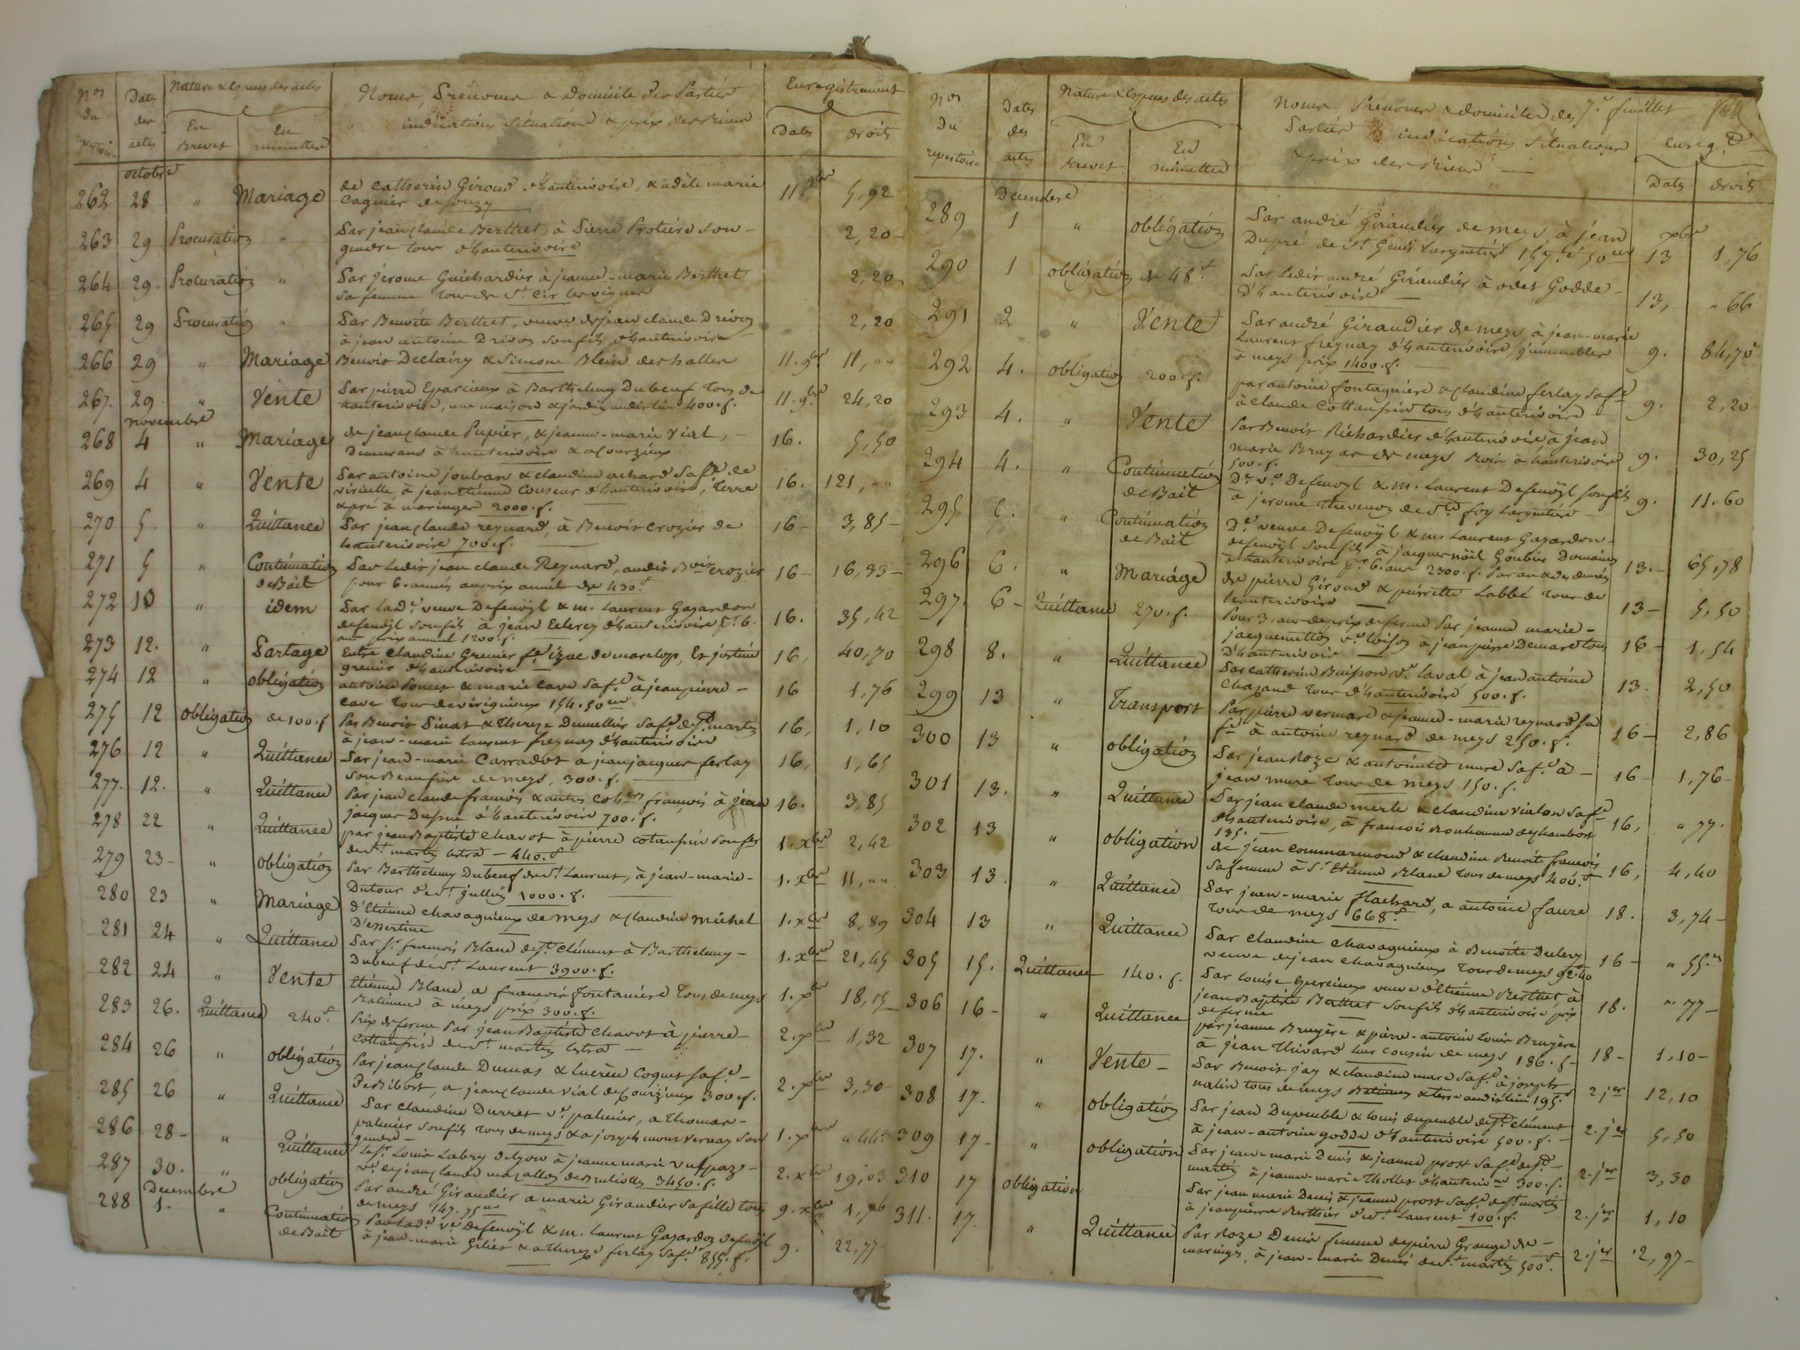 Nos du Répertoire
Dates des actes
Nature & espèces des actes
En Brevet
En minuttes
Noms, Prénoms & Domicile des Parties
indications Situations & prix des Biens
Enregistrement
Dates
droits
octobre
262 28 " Mariage de Catherin Giroud d'hauterivoire, & adèle marie 11 9bre 5,92
Cognier de Souzy
263 29 Procuration " Par jean Claude Berthet, à Pierre Protière son 2,20
gendre tous d'hauterivoire
264 29. Procuration " Par jerome Guichardier à jeanne-marie Berthet 2,20
sa femme tous de St. Cir les vignes
265 29 Procuration " Par Benoite Berthet, veuve de jean claude Drivon 2,20
à jean antoine Drivon son fils d'hauterivoire
266 29 " Mariage Benoit Declairy & Simone Blein des halles 11. 9bre 11, ""
267. 29 " Vente Par pierre Eparcieux à Barthelemy Dubeuf tous de 11. 9bre 24,20
hauterivoire, une maison & jardin audit lieu 400. f.
novembre
268 4 " Mariage de jean claude Pupier, & jeanne-marie Vial, 16. 5,50
Demeurans à hauterivoire & à Courzieux
269 4 " Vente Par antoine jouban & claudine achard sa fe. de 16. 121, ""
à jean Etienne Couseur d'hauterivoire, Terre
& pré à maringes 2000. f.
270 5. " Quittance Par jean claude reynard, à Benoit Crozier de 16 - 3,85 -
hauterivoire 700. f.
271 5 " Continuation de Bail Par Ledit jean claude Reynard, audit Boit Crozier 16 - 16,33 -
pour 6. années au prix annuel de 430 f
272 10 " idem Par Lade. veuve Defenoÿl & m. Laurent Gazardon 16. 35,42
defenoÿl son fils à jean d'hauterivoire pr. 6.
ans prix annuel 1200. f.
273 12. " Partage Entre claudine Grenier fe. de marclop, Et justine 16, 40,70
grenier d'hauterivoire
274 12 " obligation antoine Poncet & marie Cave sa fe. à jean pierre 16 1,76
Cave tous de virigneux 154. 50 cs
275 12 obligation de 100. f Par Benoit Pinat & Thereze sa fe. de St. martin 16, 1,10
à jean-marie laurent freynay d'hauterivoire
276 12 " Quittance Par jean-marie Carradot à jean jacques ferlay 16, 1,65
son Beau frère de meys, 300. f.
277. 12. " Quittance Par jean claude françois & autres françois à jean 16. 3,85
jacques Dupin d'hauterivoire 700. f.
278 22 " Quittance par jean Baptiste Chavot à pierre cotanfrin son fr. 1. xbre 2,42
de St. martin Lestra - 440. f
279 23 - " obligation Par Barthelemy Dubeuf de St. Laurent, à jean-marie 1. xbre 11, ""
Dutour de St. jullien 1000. f.
280 23 " Mariage d'Etienne chavagnieux de meys & claudine michel 1. xbre 8,89
D'essertine
281 24 " Quittance Par Sr. françois Blanc de St. clément à Barthelemy 1. xbre 21,45
Dubeuf de St. Laurent 3900. f.
282 24 " Vente Etienne Blanc à françois fontanière tous de meys 1. xbre 18,15
Batimens à meys prix 300. f.
283 26. Quittance 240 f. Prix de ferme Par jean Baptiste Chavot à pierre 2. xbre 1,32
Cottanfrin de St. martin Lestra
284 26 " obligation Par jean claude Dumas & lucrèce Coquet sa fe. 2. xbre 3,30
De Bibost, à jean claude Vial de Courzieux 300. f.
285 26 " Quittance Par Claudine Durret ve. palmier, à Thomas 1. xbre
palmier son fils tous de meys & à joseph vernay son
gendre
286 28 - " Quittance Le Sr. Louis Labry de Lyon à jeanne marie 2. xbre 19,03
ve. de jean claude de Brullioles 3450. f.
287 30. " obligation Par andré Giraudier à marie Giraudier sa fille tous 9. xbre 1,76
de meys 147. 75 cs
Decembre
288 1. " Continuation de Bail Par Lade. ve. Defenoÿl & m. Laurent Gazardon Defenoÿl 9. 22,77
à jean-marie Gilier & à Thereze ferlay sa fe. 855. f.
Nos du répertoire
Dates des actes
Nature & especes des actes
En brevet
En minuttes
Noms Prénoms & domiciles des 7e. feuillet
Parties & indications Situations
& prix des Biens
Enregt.
Dates
droits
Decembre
289 1 " obligation Par andré Giraudier de meys à jean xbre
Dupré de St. Genis Largentière 157. f 50 cs 13 1,76
290 1 obligation de 48 f Par Ledit andré Giraudier à odet Godde 13, " 66
D'hauterivoire
291 2 " Vente Par andré Giraudier de meys, à jean-marie
Laurent freynay d'hauterivoire, immeubles 9. 84,70
à meys prix 1400. f.
292 4. obligation 200. f. par antoine fontagnière & claudine ferlay sa fe. 9. 2,20
à claude Cottanfrin tous d'hauterivoire
293 4. " Vente Par Benoit Richardier d'hauterivoire à jean
marie Bruyas de meys Bois à hauterivoire 9. 30,25
500. f.
294 4. " Continuation de Bail De. ve. Defenoyl & m. Laurent Defenoÿl son fils 9. 11.60
à jerome thevenon de Ste. foy Largentière
295 6. " Continuation de Bail De. veuve Defenoÿl & m. Laurent Gazardon
defenoÿl son fils à jacques noël Goubier Domaine
à hauterivoire pr. 6. ans 2300. f. par an & des denrées 13. - 65,78
296 6. " Mariage de pierre Giroud & pierrette Labbé tous de 13 - 5,50
hauterivoire
297. 6 - Quittance 270. f. Pour 3. ans de prix de ferme Par jeanne marie 16 - 1,54
jacquemetton ve. à jean pierre Demare tous
D'hauterivoire
298 8. " Quittance Par Catherine Buisson ve. Laval à jean antoine 13. 2,50
Chazand tous d'hauterivoire 500. f.
299 13 " Transport Par pierre vermare & jeanne-marie reynard sa 16 - 2,86
fe. à antoine reynard de meys 250. f.
300 13 " obligation Par jean Roze & antoinette mure sa fe. à 16 - 1,76 -
jean mure tous de meys 150. f.
301 13. " Quittance Par jean claude merle & claudine vialon sa fe.
d'hauterivoire, à françois Bonhomme de chambost 16, " 77.
135.
302 13 " obligation de jean commarmond & claudine Benoit françois 16, 4,40
sa femme à Sr. Etienne Blanc tous de meys 400. f
303 13. " Quittance Par jean-marie flachard, à antoine faure 18. 3,74 -
tous de meys 668 f
304 13 " Quittance Par claudine chavagnieux à Benoite
veuve de jean chavagnieux tous de meys 92. 40 16 - " 55. cs
305 15. Quittance 140. f. Par Louise Eparcieux veuve d'Etienne Berthet à
jean Baptiste Berthet son fils d'hauterivoire prix 18. " 77 -
de ferme
306 16 - " Quittance par jeanne Bruyère & pierre-antoine Louis Bruyère
à jean Thivard leur cousin de meys 186. f - 18 - 1,10 -
307 17. " Vente - Par Benoit jay & claudine mare sa fe. à joseph
nalin tous de meys Batimens & terre audit lieu 195. f 2. jer 12,10
308 17. " obligation Par jean Dupeuble & louis dupeuble de St. clément
à jean-antoine godde d'hauterivoire 500. f. - 2. jer 5,50
309 17 - " obligation Par jean-marie Denis & jeanne prost sa fe. de St.
martin à jeanne-marie Thollet d'hauterivoire 300. f. 2. jer 3,30
310 17 obligation Par jean marie Denis & jeanne prost sa fe. de St. martin
à jean pierre Berthier de St. Laurent 100. f. 2. jer 1,10
311. 17. " Quittance Par Roze Denis femme de pierre Grange de
maringes, à jean-marie Denis de St. martin 500 f. 2. jer 2,97 -